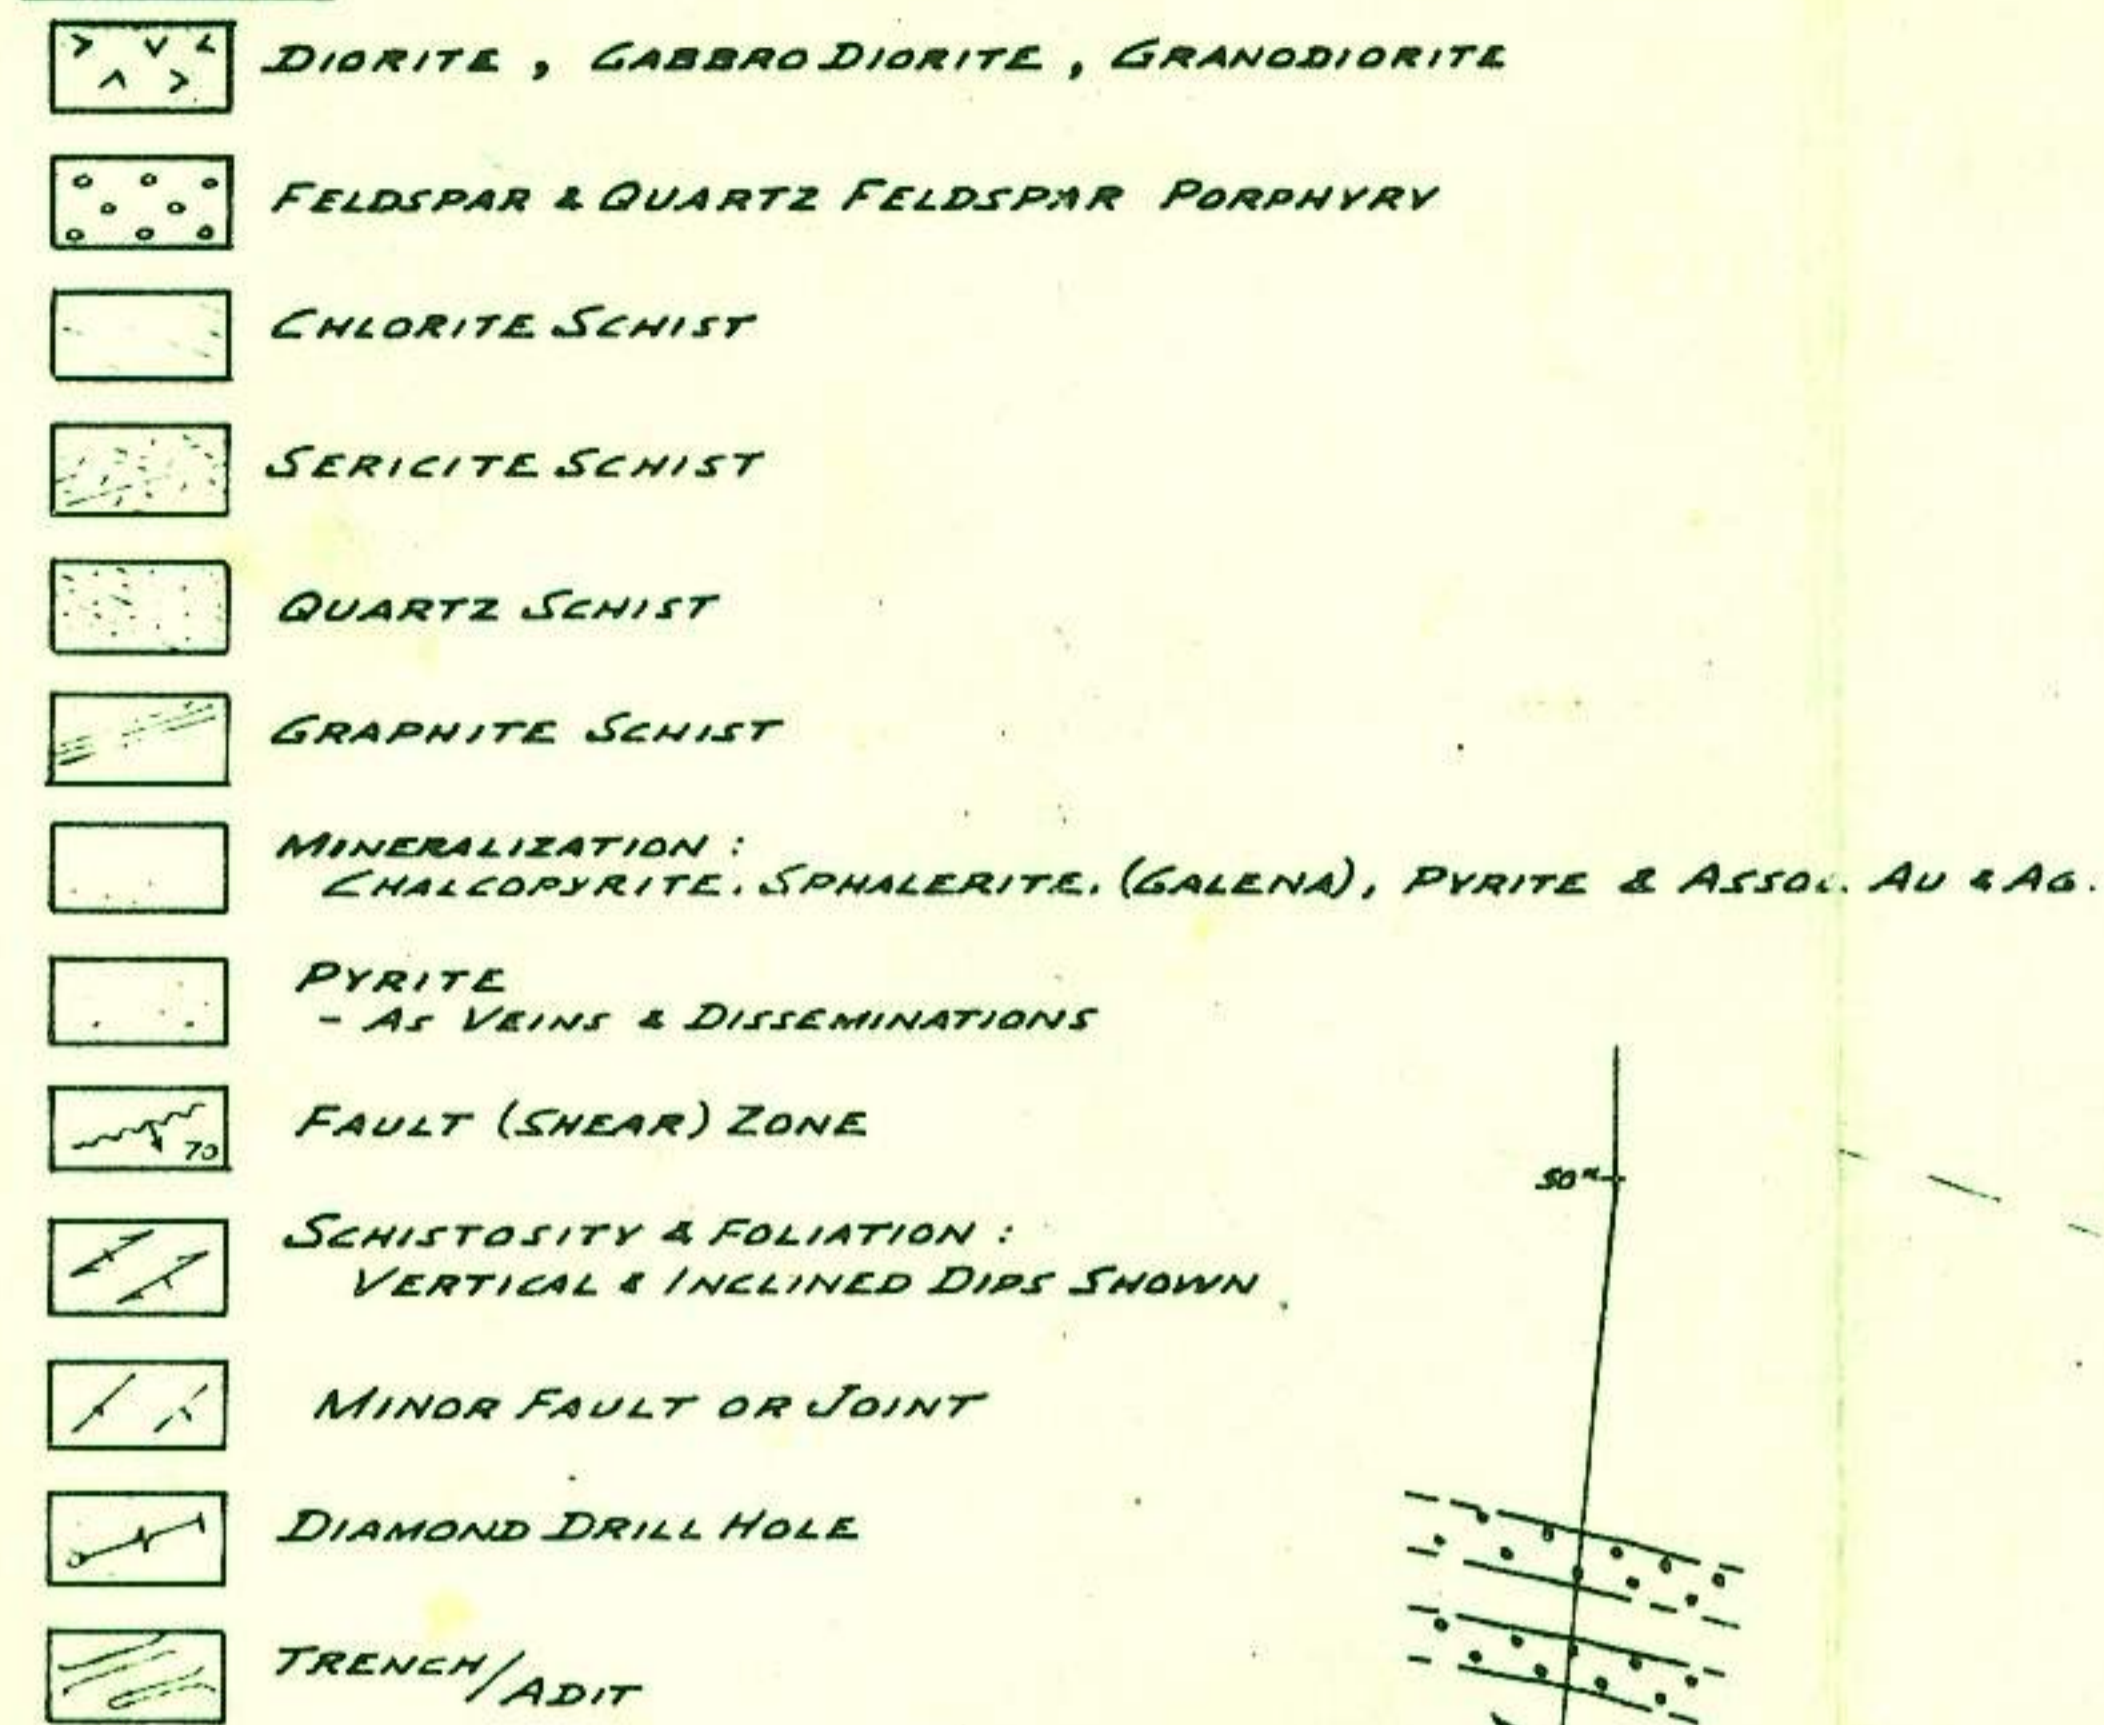 DIORITE , GABBRO DIORITE , GRANODIORITE
FELDSPAR & QUARTZ FELDSPAR PORPHYRY
CHLORITE SCHIST
SERICITE SCHIST
QUARTZ SCHIST
GRAPHITE SCHIST
MINERALIZATION :
CHALCOPYRITE, SPHALERITE, (GALENA), PYRITE & ASSOC. AU & AG.
PYRITE
- AS VEINS & DISSEMINATIONS
70
FAULT (SHEAR) ZONE
50M
SCHISTOSITY & FOLIATION :
VERTICAL & INCLINED DIPS SHOWN
MINOR FAULT OR JOINT
DIAMOND DRILL HOLE
TRENCH/ADIT